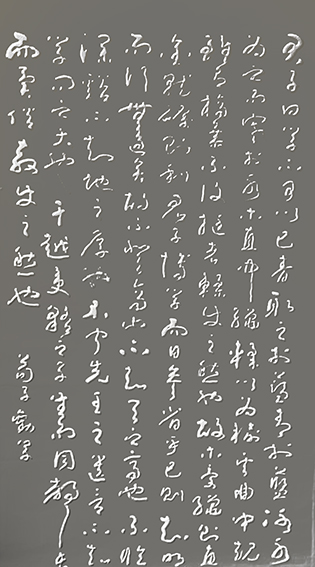 君子曰學不可以已青取之於藍青於藍冰水
為之而寒於水木直中繩輮以為輪其曲中規
雖有槁暴不復挺者輮使之然也故木受繩則直
金就礪則利君子博學而日參省乎己則知明
而行無過矣故不登高山不知天之高也不臨
深谿不知地之厚也不聞先王之遺言不知
學問之大也干越夷貉之子生而同聲長
而異俗教使之然也 荀子勸學